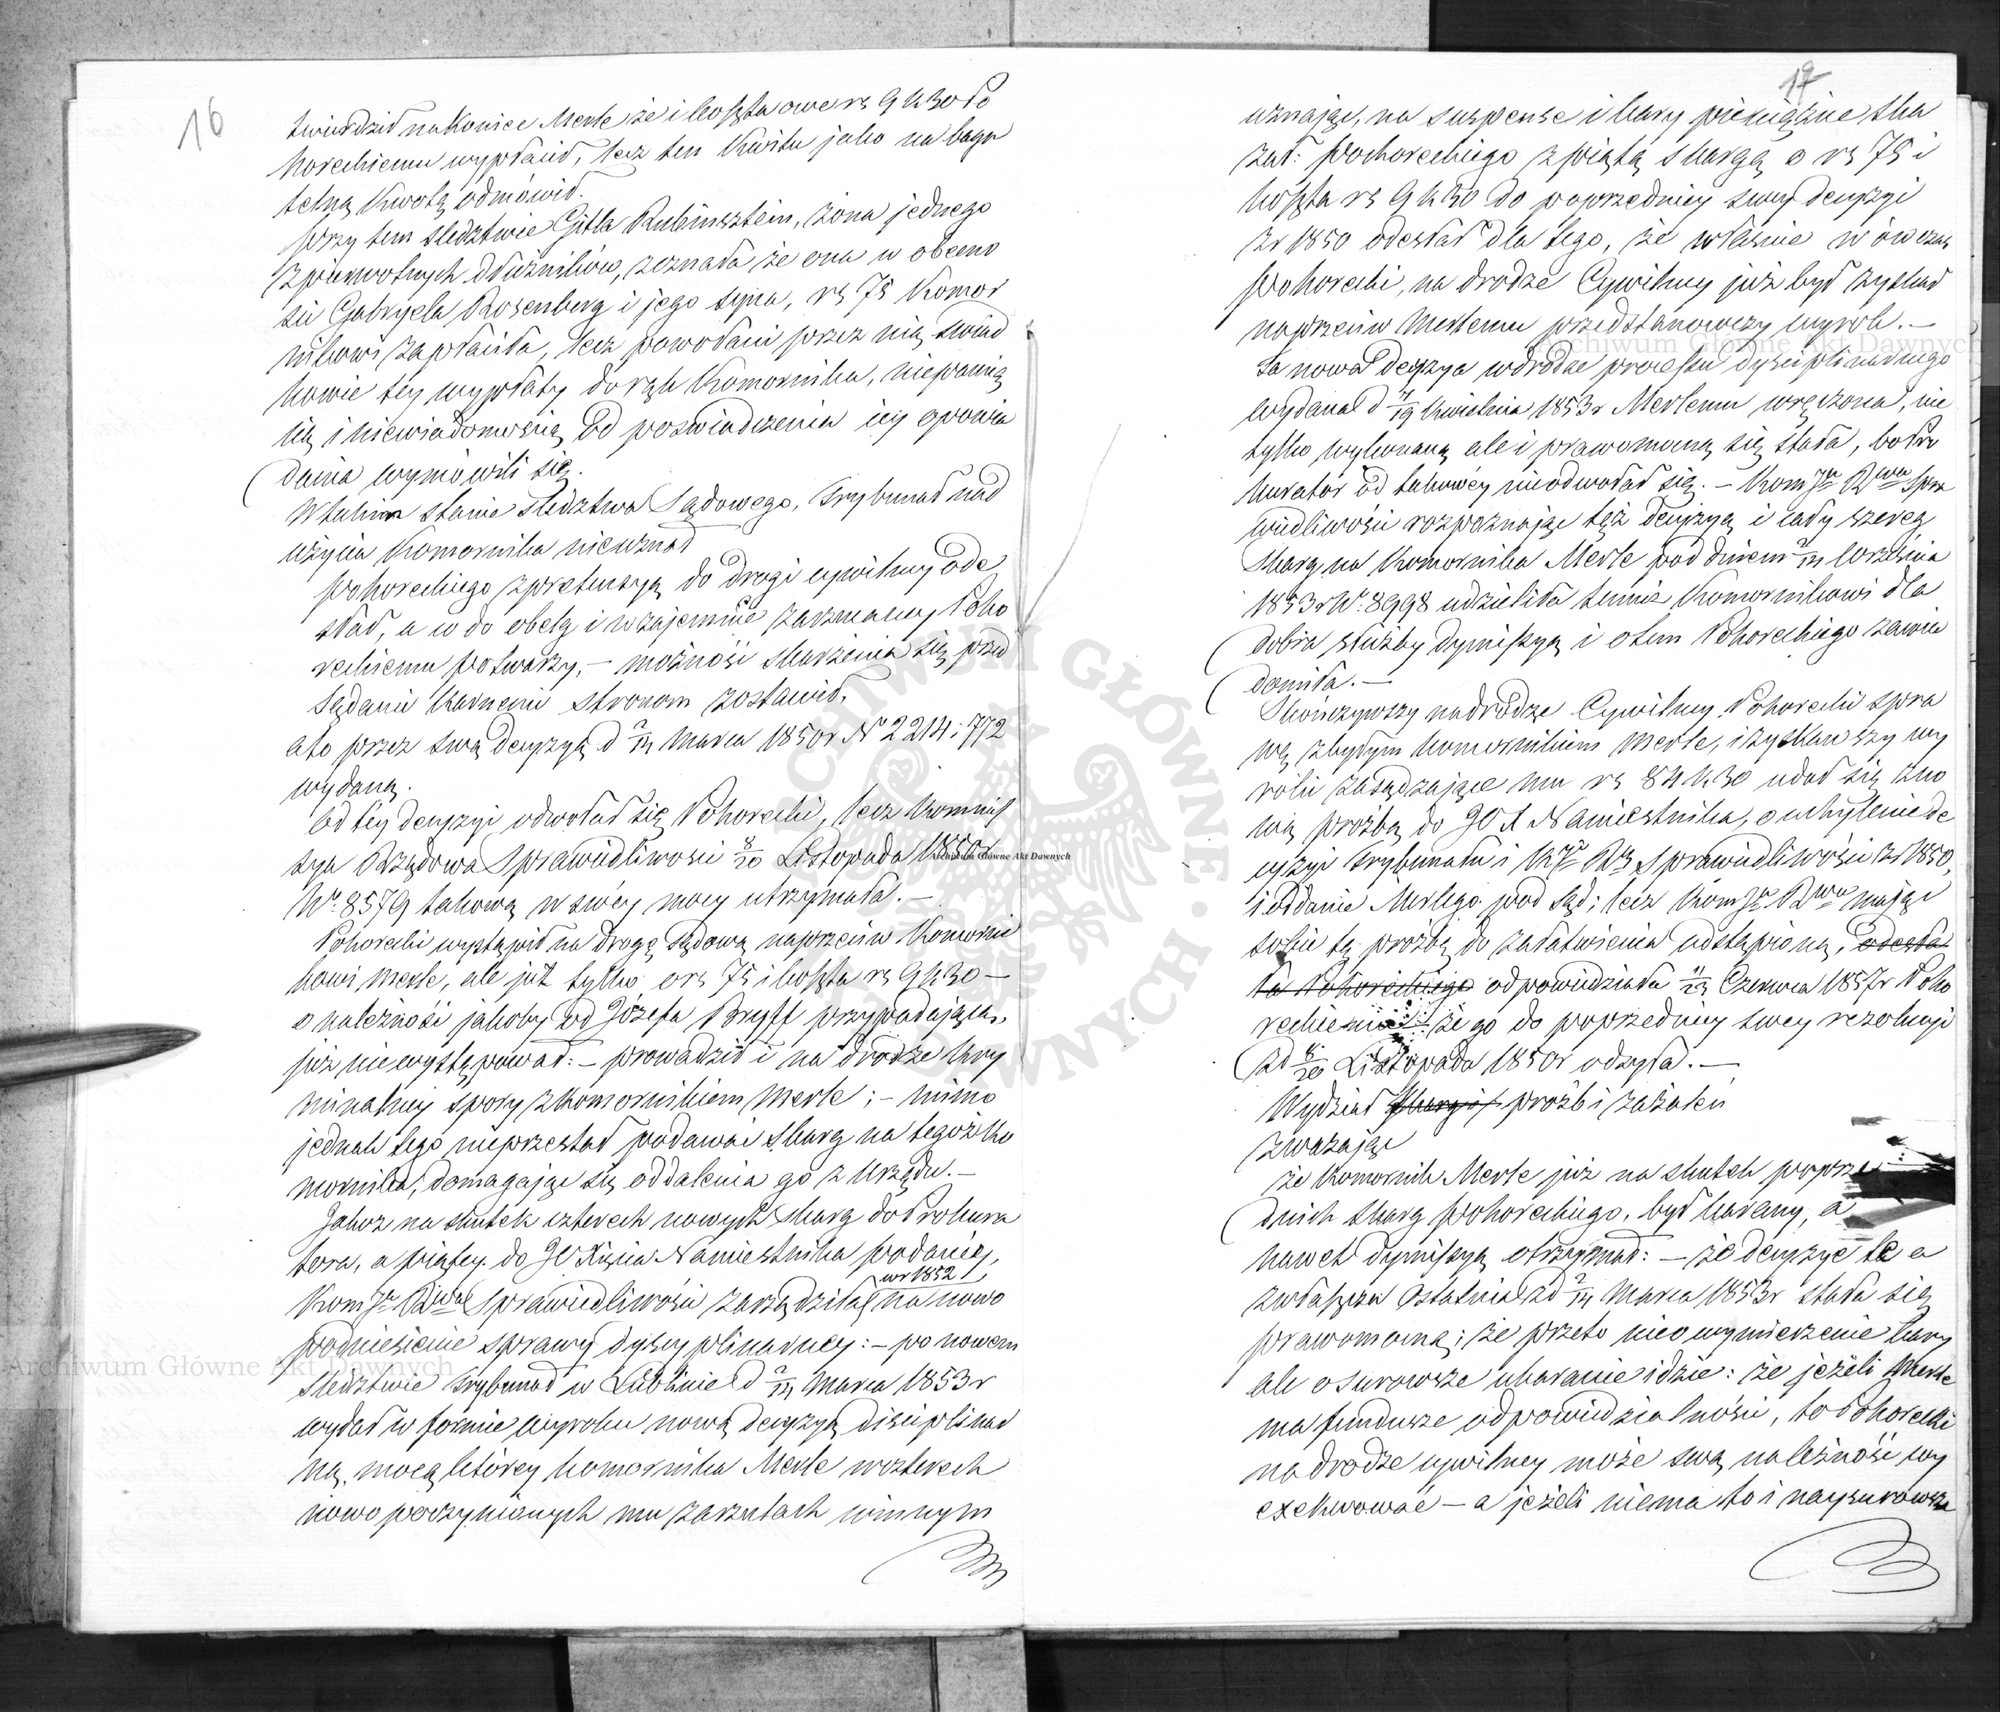 16
twierdził nakoniec Merle że i koszta owe rs 9 k 30 Po
horeckiemu wypłacił, lecz ten kwitu jako na baga
telną kwotę odmówił.
przy tem śledztwie Gitla Rubinsztein, żona jednego
z pierwotnych dłużników, zeznała że ona w obecno
ści Gabryela Rosenberg i jego syna, rs 75 Komor
nikowi zapłaciła, lecz powołani przez nią świad
kowie tey wypłaty do rąk Komornika, niepamię
cią i niewiadomością od poświadczenia iey opowia
dania wymówili się.
W takim stanie śledztwa Sądowego, Trybunał nad
użycia Komornika nieuznał
Pohoreckiego z pretensyą do drogi cywilney ode
słał, a co do obelg i wzajemnie zarzucaney Poho
reckiemu potwarzy, – możność skarżenia się przed
Sądami Karnemi stronom zostawił,
a to przez swą decyzyą d 2/14 Marca 1850r N 2214 : 772
wydaną.
Od tey decyzyi odwołał się Pohorecki, lecz Kommis
sya Rządowa Sprawiedliwości 8/20 Listopada 1850r
Nr 8579 takową w swéy mocy utrzymała. –
Pohorecki wystąpił na drogę sądową naprzeciw Komorni
kowi Merle, ale już tylko o rs 75 i koszta rs 9 k 30 –
o należności jakoby od Józefa Bryff przypadającą,
już nie występował : – prowadził i na drodze kry
minalney spory z Komornikiem Merle ; – mimo
jednak tego nieprzestał podawać skarg na tegoż Ko
mornika, domagając się oddalenia go z Urzędu. –
Jakoż na skutek czterech nowych skarg do Prokura
tora, a piątey do JO Xięcia Namiestnika podaney,
w r 1852
Kom Ja Rwa Sprawiedliwości zarządziła na nowo
podniesienie sprawy dyscyplinarney : – po nowem
śledztwie Trybunał w Lublinie d 2/14 Marca 1853 r
wydał w formie wyroku nową decyzyą disciplinar
ną, mocą którey komornika Merle w czterech
nowo poczynionych mu zarzutach winnym
17
uznając, na suspense i kary pieniężne ska
zał : Pohoreckiego z piątą skargą o rs 75 i
koszta rs 9 k 30 do poprzedniey swey decyzyi
z r 1850 odesłał dla tego, że właśnie wówczas
Pohorecki, na drodze Cywilney już był zyskał
naprzeciw Merlemu przedstanowczy wyrok. –
Ta nowa decyzya w drodze processu dyscyplinarnego
wydana d 7/19 Kwietnia 1853 r Merlemu wręczona, nie
tylko wykonaną ale i prawomocną się stała, bo Pro
kurator od takowéy nieodwołał się. – Kom Ja Rwa Spra
wiedliwości rozpoznając tęż decyzyą i cały szereg
skarg na Komornika Merle pod dniem 2/14 Września
1853 r Nr 8998 udzieliła temuż Komornikowi dla
dobra służby dymissyą i o tem Pohoreckiego zawia
domiła. –
Skończywszy na drodze Cywilney Pohorecki spra
wę z byłym komornikiem Merle, i zyskawszy wy
roki zasądzające mu rs 84 k 30 udał się zno
wą prośbą do JOX Namiestnika, o uchylenie de
cyzyi Trybunału i Kji Rz Sprawiedliwości z r 1850,
i oddanie Merlego pod sąd ; lecz Kom Ja Rwa mając
sobie tę prośbę do załatwienia odstąpioną, odesła
ła Pohoreckiego odpowiedziała 11/23 Czerwca 1857r Poho
reckiemu że go do poprzedniey swey rezolucyi
z d 8/20 Listopada 1850r odsyła. –
Wydział Skarg i prośb i zażaleń
zważając
że Komornik Merle już na skutek poprze
dnich skarg Pohoreckiego, był karany, a
nawet dymissyą otrzymał : – że decyzye te a
zwłaszcza ostatnia z d 2/14 Marca 1853r stała się
prawomocną ; że przeto nie o wymierzenie kary
ale o surowsze ukaranie idzie : że jeżeli Merle
ma fundusze odpowiedzialności, to Pohorecki
na drodze cywilney może swą należność wy
exekwować – a jeżeli niema to i naysurowsze
Archiwum Główne Akt Dawnych
Archiwum Główne Akt Dawnych
Archiwum Główne Akt Dawnych
ARCHIWUM GŁÓWNE AKT DAWNYCH